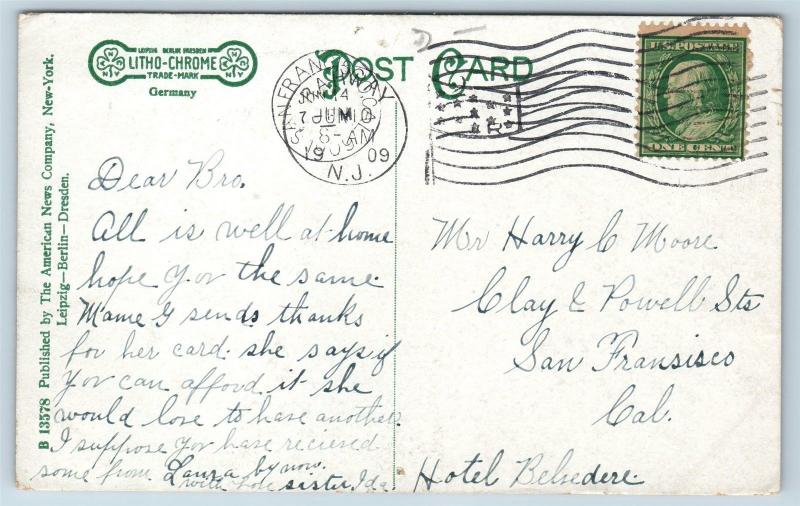 LEIPZIG BERLIN DRESDEN
LITHO-CHROME
TRADE-MARK
N Y
N Y
Germany
POST CARD
SAN FRANCISCO
RAHWAY
JUN 10
8- AM
1909
N.J.
U.S. POSTAGE
ONE CENT
B 13578 Published by The American News Company, New-York.
Leipzig—Berlin—Dresden.
Dear Bro.
All is well at home
hope you the same
Mame G sends thanks
for her card. she says if
you can afford it she
would love to have another.
I suppose you have recieved
some from Laura by now.
with love sister Ida
Mr Harry C Moore
Clay & Powell Sts
San Fransisco
Cal.
Hotel Belvedere.